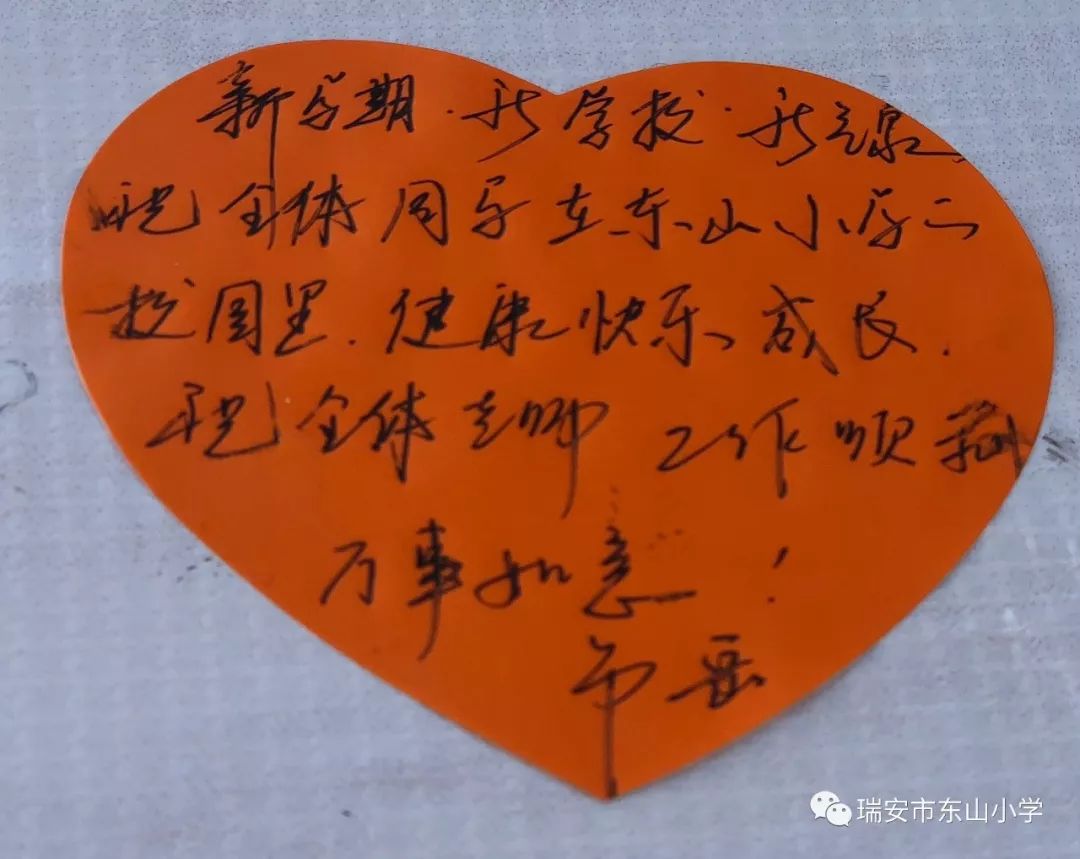 新学期·新学校·新气象,
祝全体同学在东山小学二
校园里.健康快乐成长.
祝全体老师 工作顺利
万事如意!
瑞安市东山小学